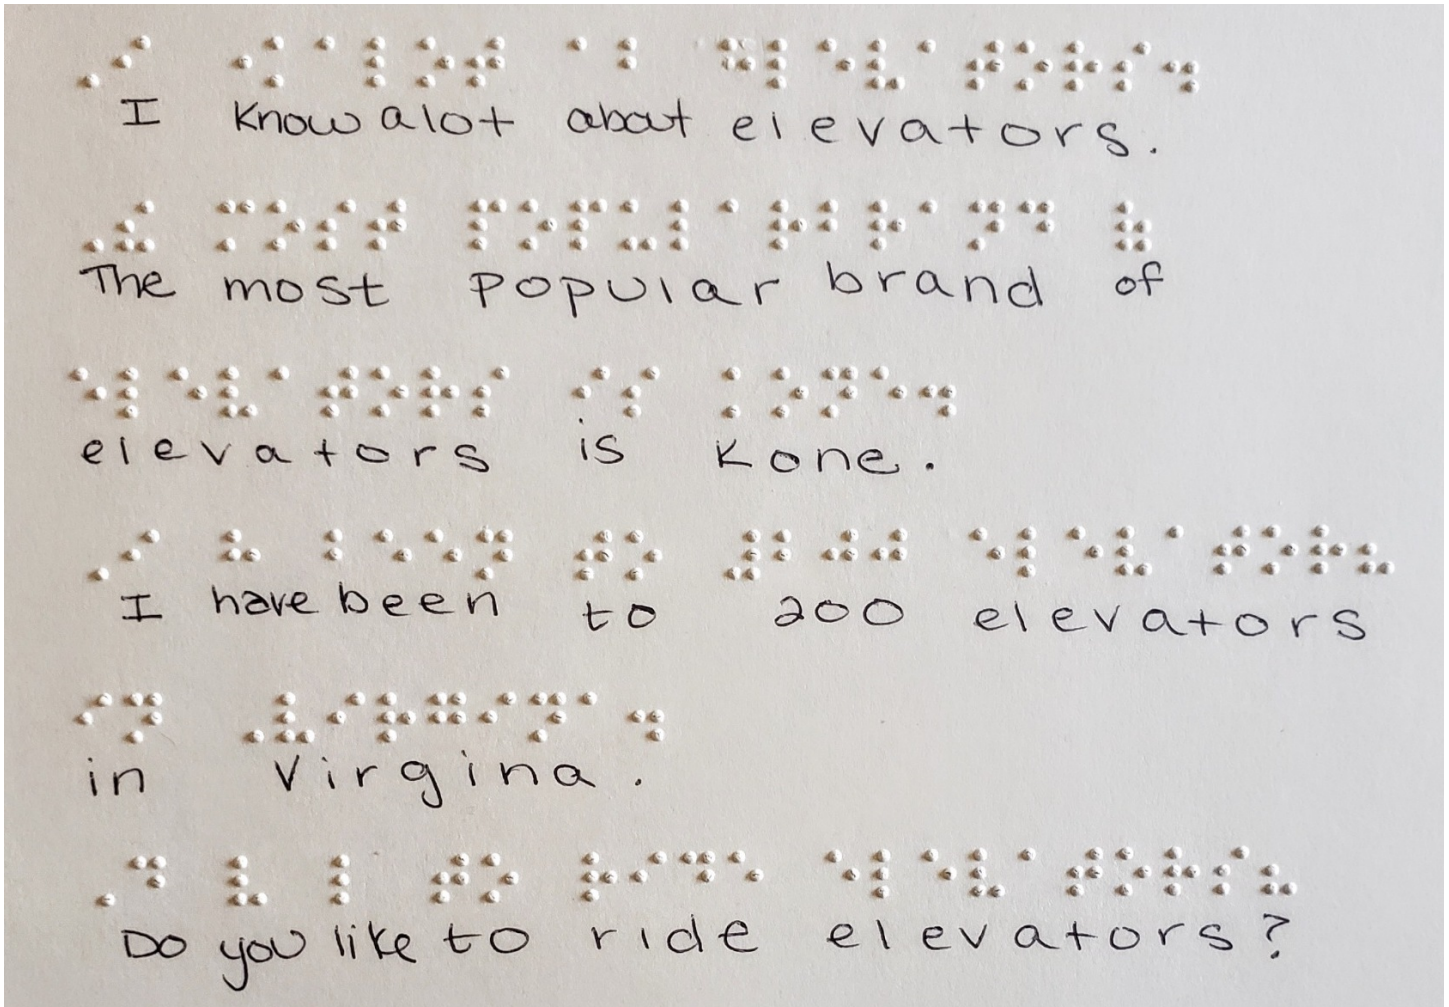 I know alot about elevators.
The most popular brand of
elevators is Kone.
I have been to 200 elevators
in Virgina.
Do you like to ride elevators?